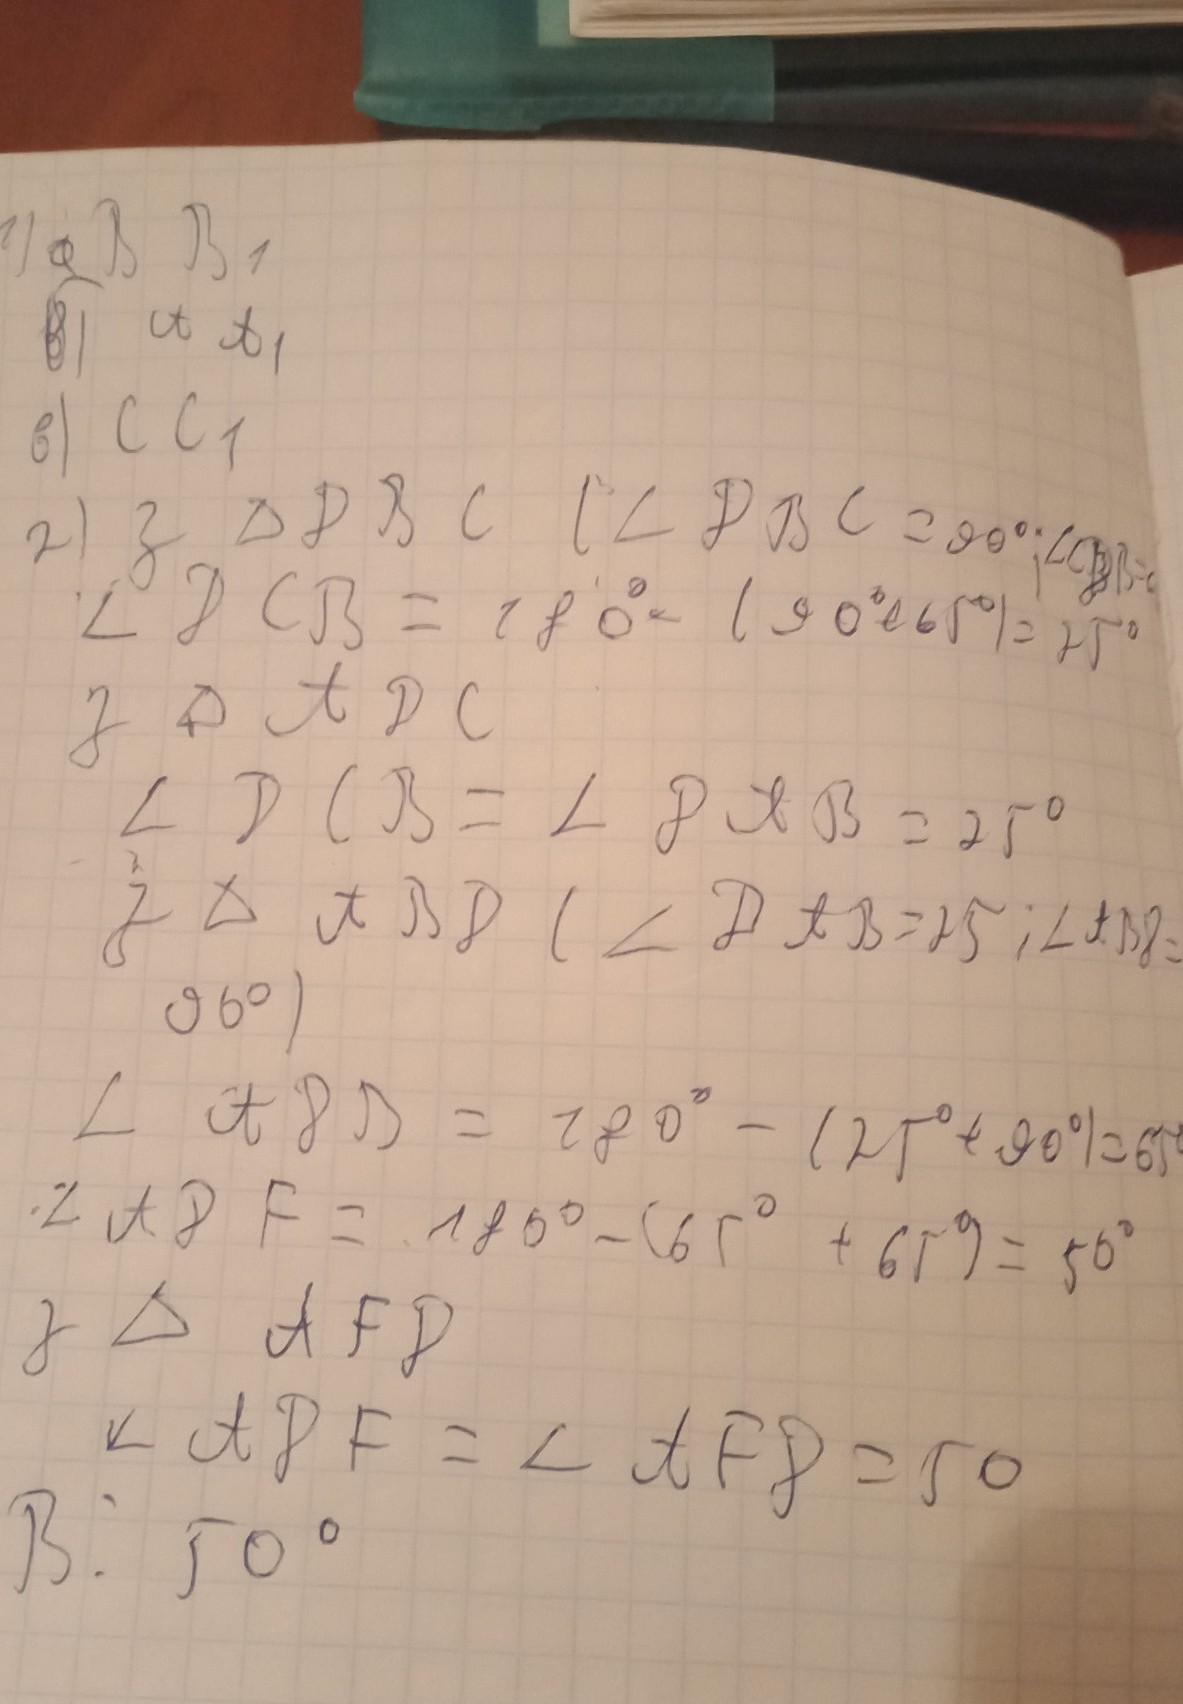 1) а B B₁
б) A A₁
в) C C₁
2) З △ D B C (∠ D B C = 90°; ∠CDB=
∠ D C B = 180° - (90°+65°) = 25°
З △ A D C
∠ D C B = ∠ D A B = 25°
З △ A B D (∠ D A B = 25; ∠ABD=
90°)
∠ A D B = 180° - (25°+90°)=65°
∠ A D F = 180° - (65° + 65°) = 50°
З △ A F D
∠ A D F = ∠ A F D = 50
В: 50°